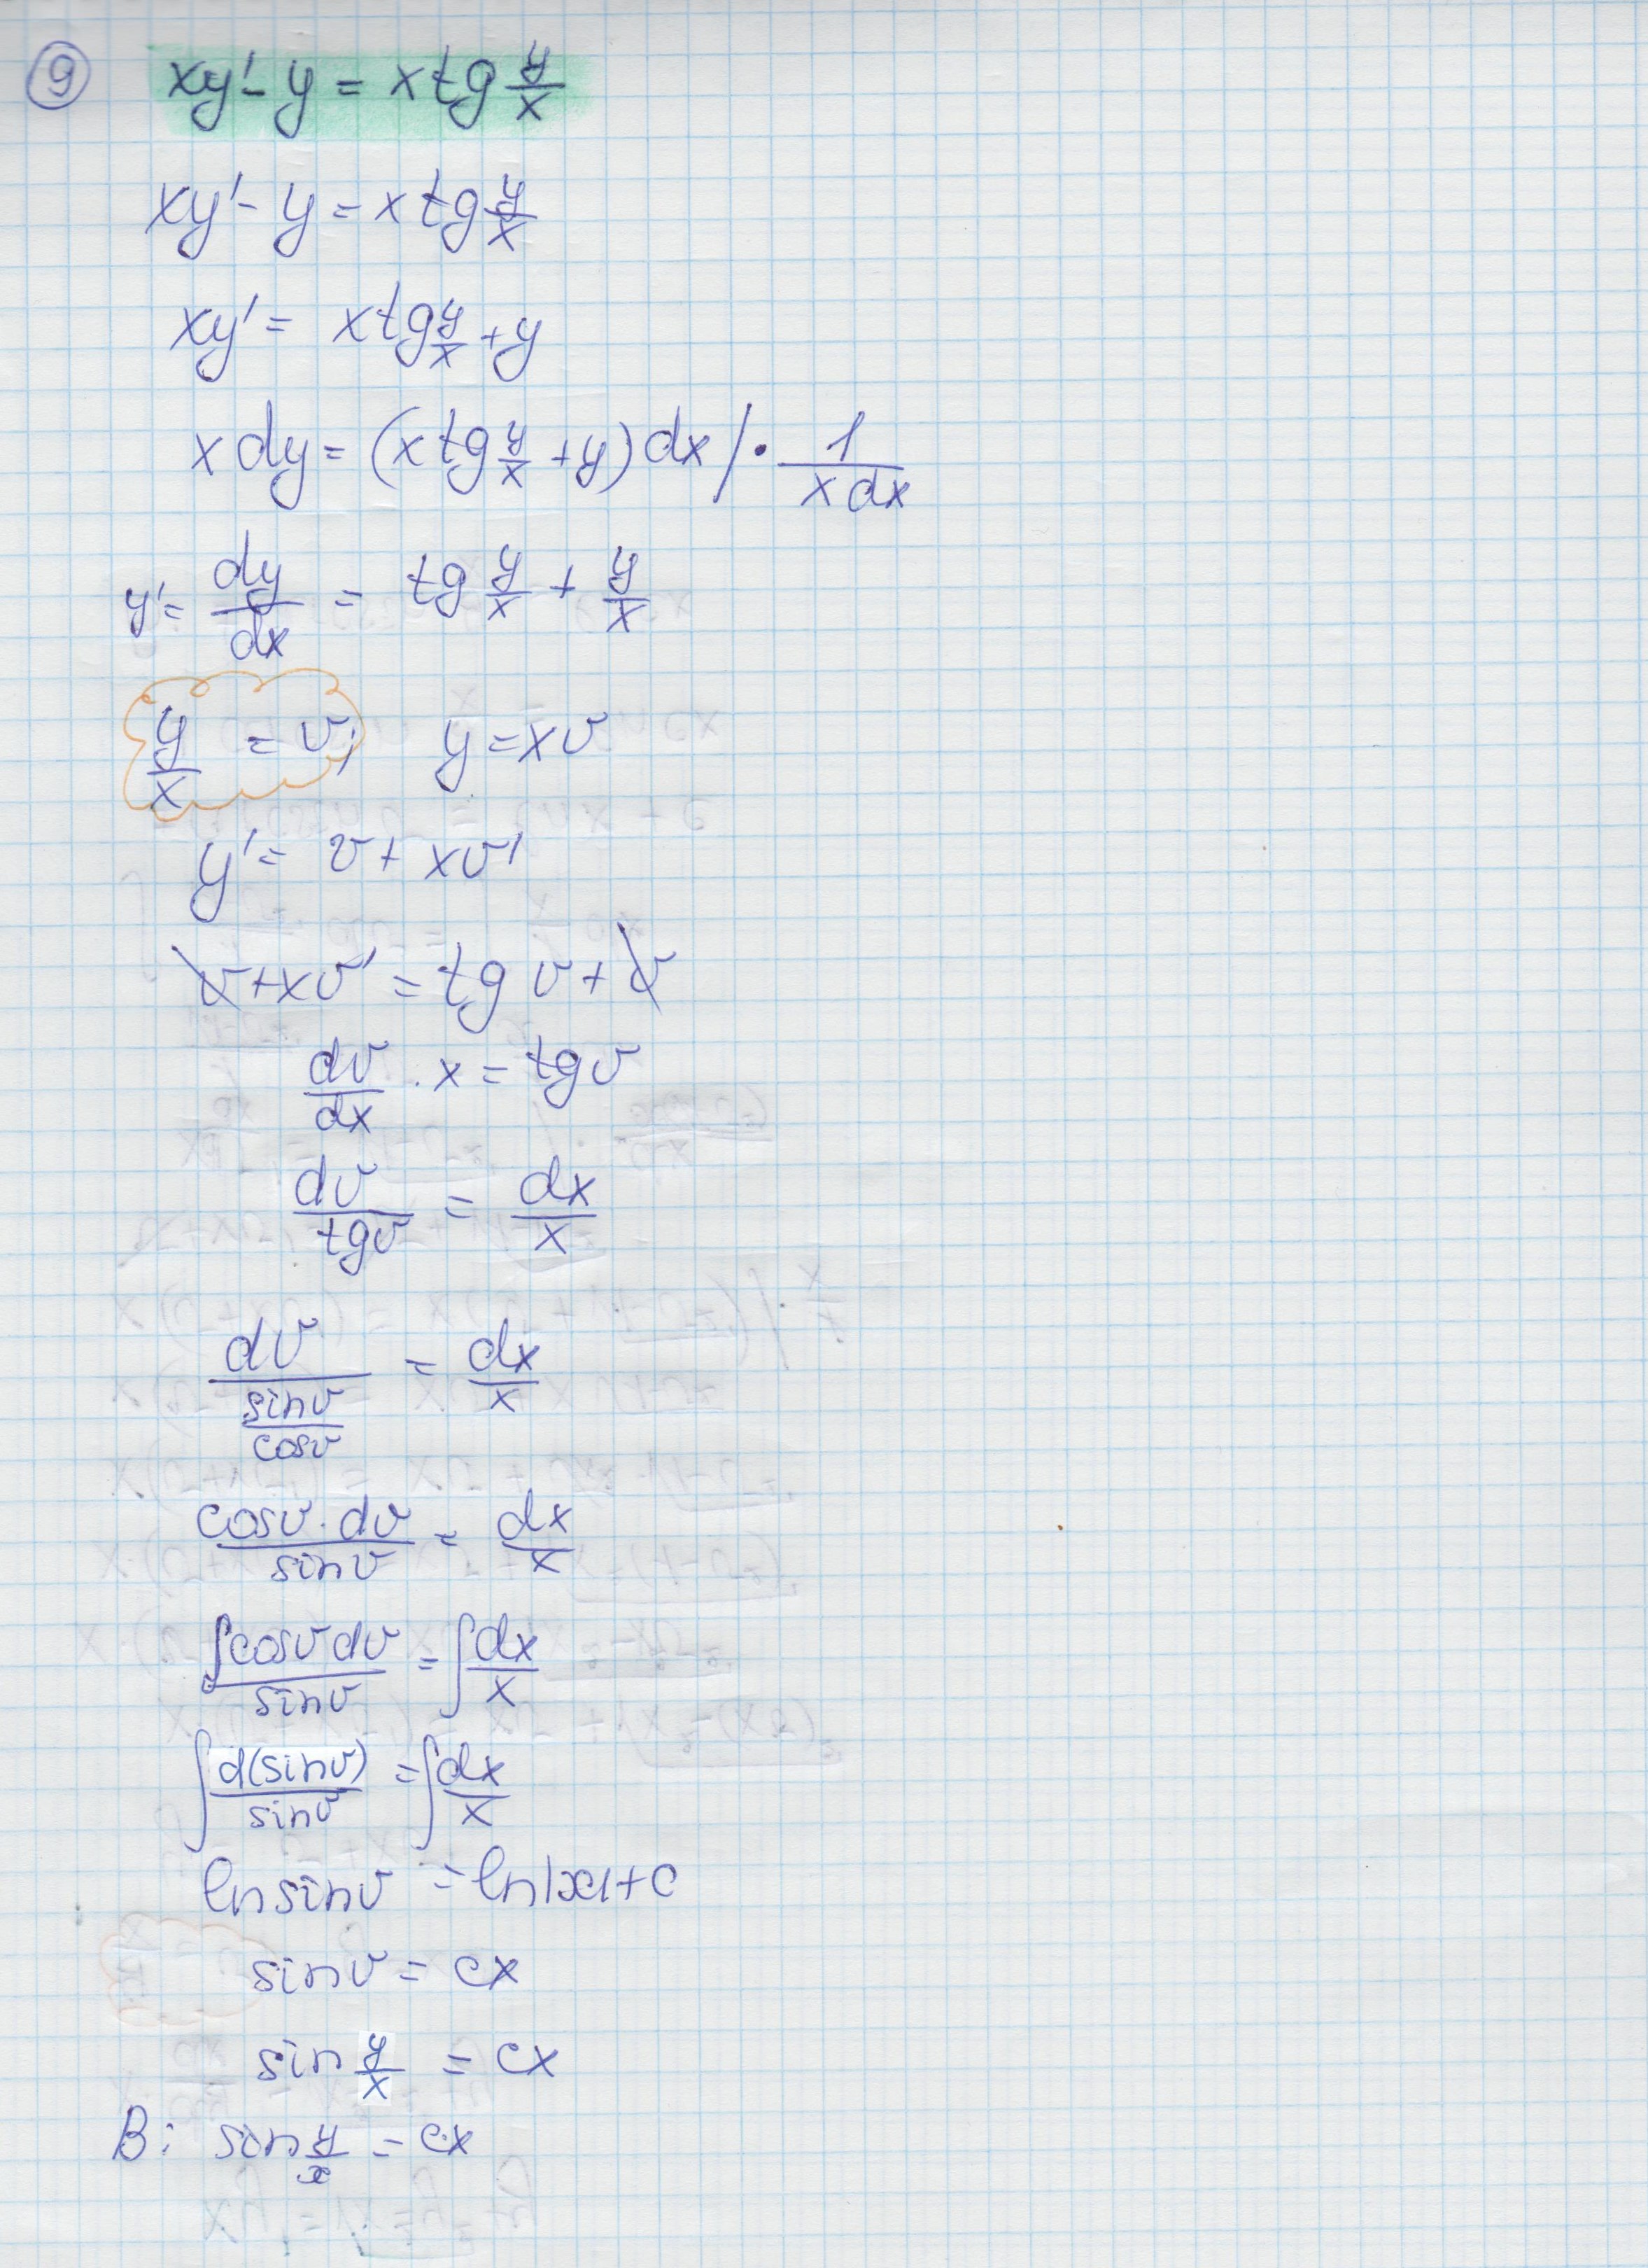 9 xy' - y = x tg y/x
xy' - y = x tg y/x
xy' = x tg y/x + y
x dy = (x tg y/x + y) dx / · 1/(x dx)
y' = dy/dx = tg y/x + y/x
y/x = v; y = xv
y' = v + xv'
v + xv' = tg v + v
dv/dx · x = tg v
dv/tg v = dx/x
dv/(sin v/cos v) = dx/x
cos v · dv/sin v = dx/x
∫ cos v dv/sin v = ∫ dx/x
∫ d(sin v)/sin v = ∫ dx/x
ln sin v = ln|x| + c
sin v = cx
sin y/x = cx
В: sin y/x = cx